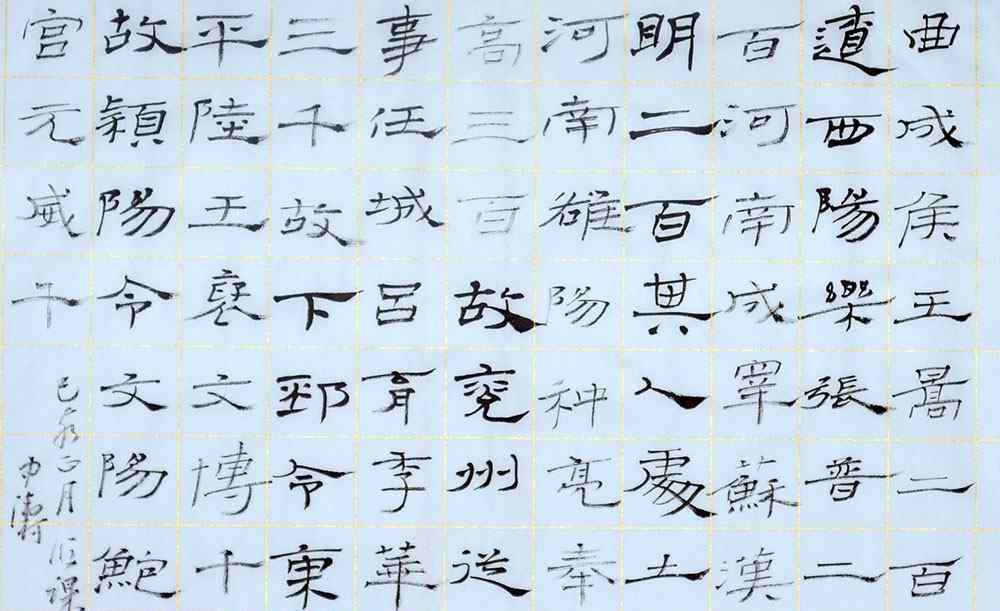 曲成侯王暠二百
遼西陽樂張普二
百河南成睪蘇漢
明二百其人處土
河南雒陽种亮奉
高三百故兗州從
事任城呂育季華
三千故下邳令東
平陸王褒文博千
故潁陽令文陽鮑
宮元威千
己亥正月臨課